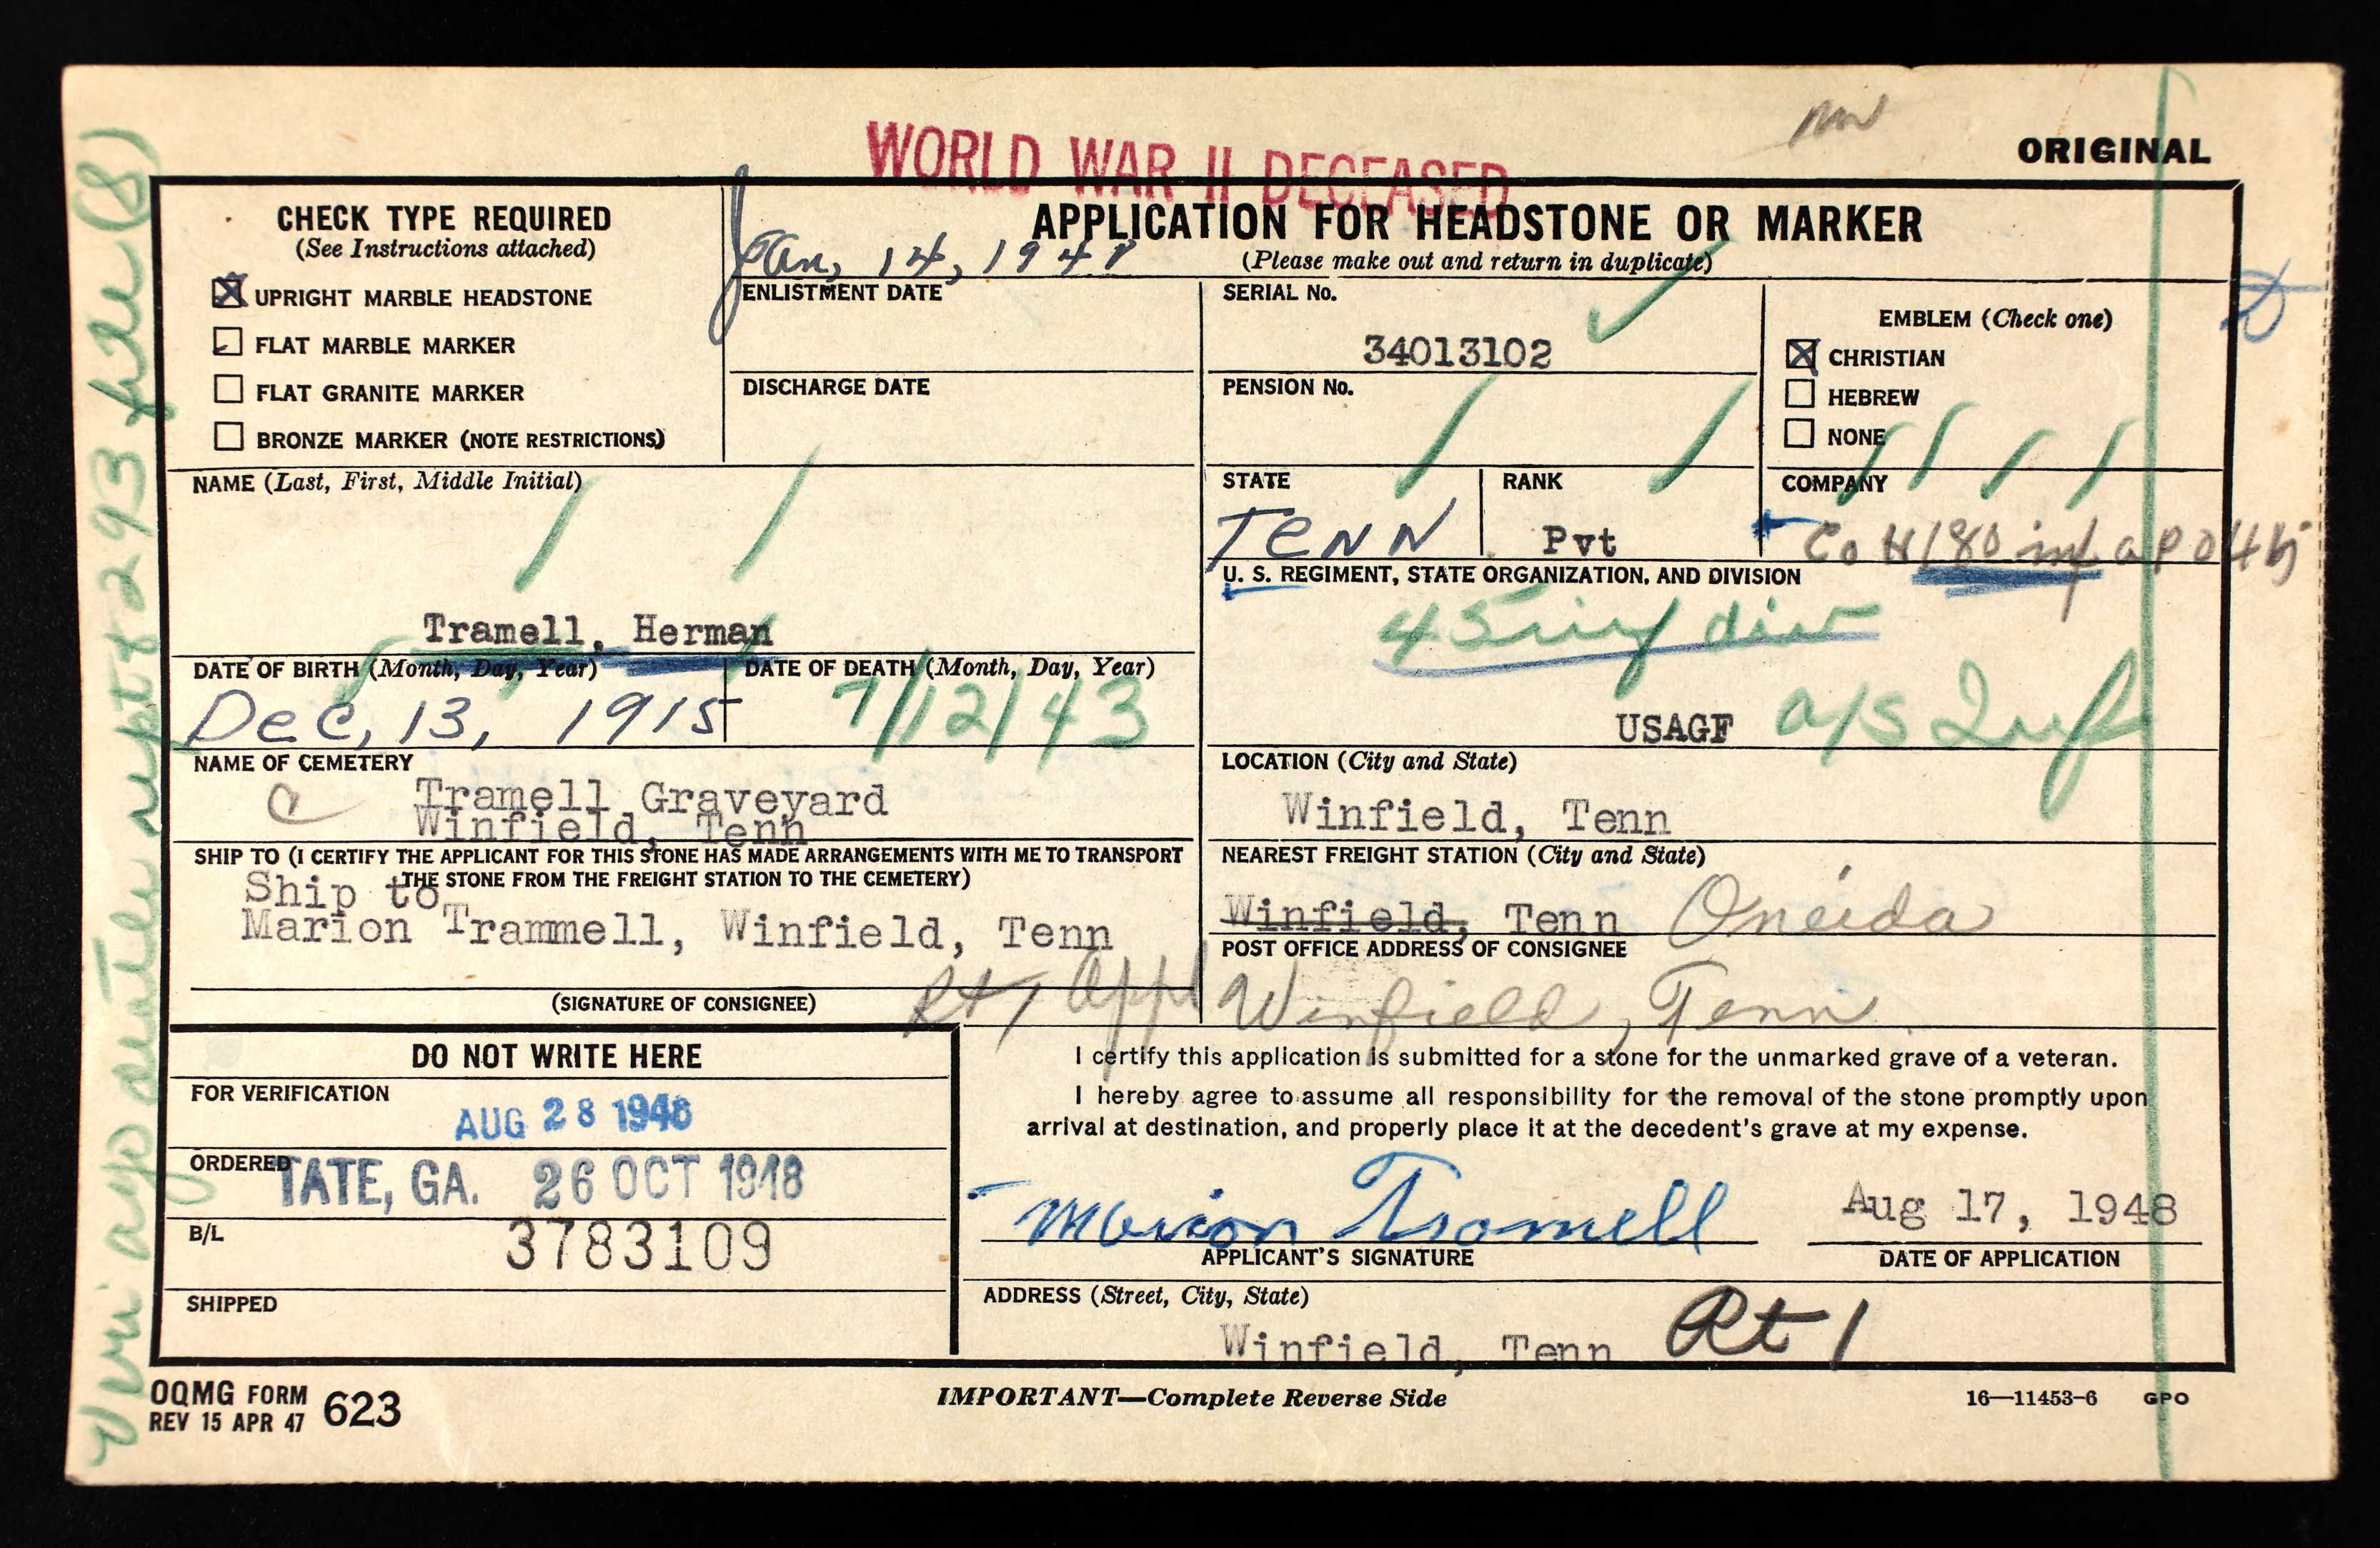 WORLD WAR II DECEASED
ORIGINAL
CHECK TYPE REQUIRED
(See Instructions attached)
UPRIGHT MARBLE HEADSTONE
FLAT MARBLE MARKER
FLAT GRANITE MARKER
BRONZE MARKER (NOTE RESTRICTIONS)
APPLICATION FOR HEADSTONE OR MARKER
(Please make out and return in duplicate)
Jan, 14, 194
ENLISTMENT DATE
DISCHARGE DATE
SERIAL No.
34013102
PENSION No.
EMBLEM (Check one)
CHRISTIAN
HEBREW
NONE
NAME (Last, First, Middle Initial)
Tramell, Herman
STATE
TENN
RANK
Pvt
COMPANY
Co H 180 inf apo 45
U. S. REGIMENT, STATE ORGANIZATION, AND DIVISION
45 inf div
USAGF a/s Inf
DATE OF BIRTH (Month, Day, Year)
Dec, 13, 1915
DATE OF DEATH (Month, Day, Year)
7/12/43
NAME OF CEMETERY
Tramell Graveyard
Winfield, Tenn
LOCATION (City and State)
Winfield, Tenn
SHIP TO (I CERTIFY THE APPLICANT FOR THIS STONE HAS MADE ARRANGEMENTS WITH ME TO TRANSPORT
THE STONE FROM THE FREIGHT STATION TO THE CEMETERY)
Ship to
Marion Trammell, Winfield, Tenn
(SIGNATURE OF CONSIGNEE)
NEAREST FREIGHT STATION (City and State)
Winfield, Tenn Oneida
POST OFFICE ADDRESS OF CONSIGNEE
Rt 1 appl Winfield, Tenn.
DO NOT WRITE HERE
FOR VERIFICATION
AUG 28 1948
ORDERED
TATE, GA. 26 OCT 1948
B/L
3783109
SHIPPED
I certify this application is submitted for a stone for the unmarked grave of a veteran.
I hereby agree to assume all responsibility for the removal of the stone promptly upon
arrival at destination, and properly place it at the decedent's grave at my expense.
Marion Tramell
APPLICANT'S SIGNATURE
Aug 17, 1948
DATE OF APPLICATION
ADDRESS (Street, City, State)
Winfield, Tenn Rt 1
OQMG FORM 623
REV 15 APR 47
IMPORTANT—Complete Reverse Side
16—11453-6 GPO
Veri ago death rept & 293 file (8)